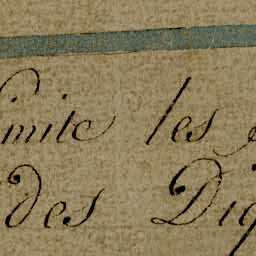 limite les
des Dig